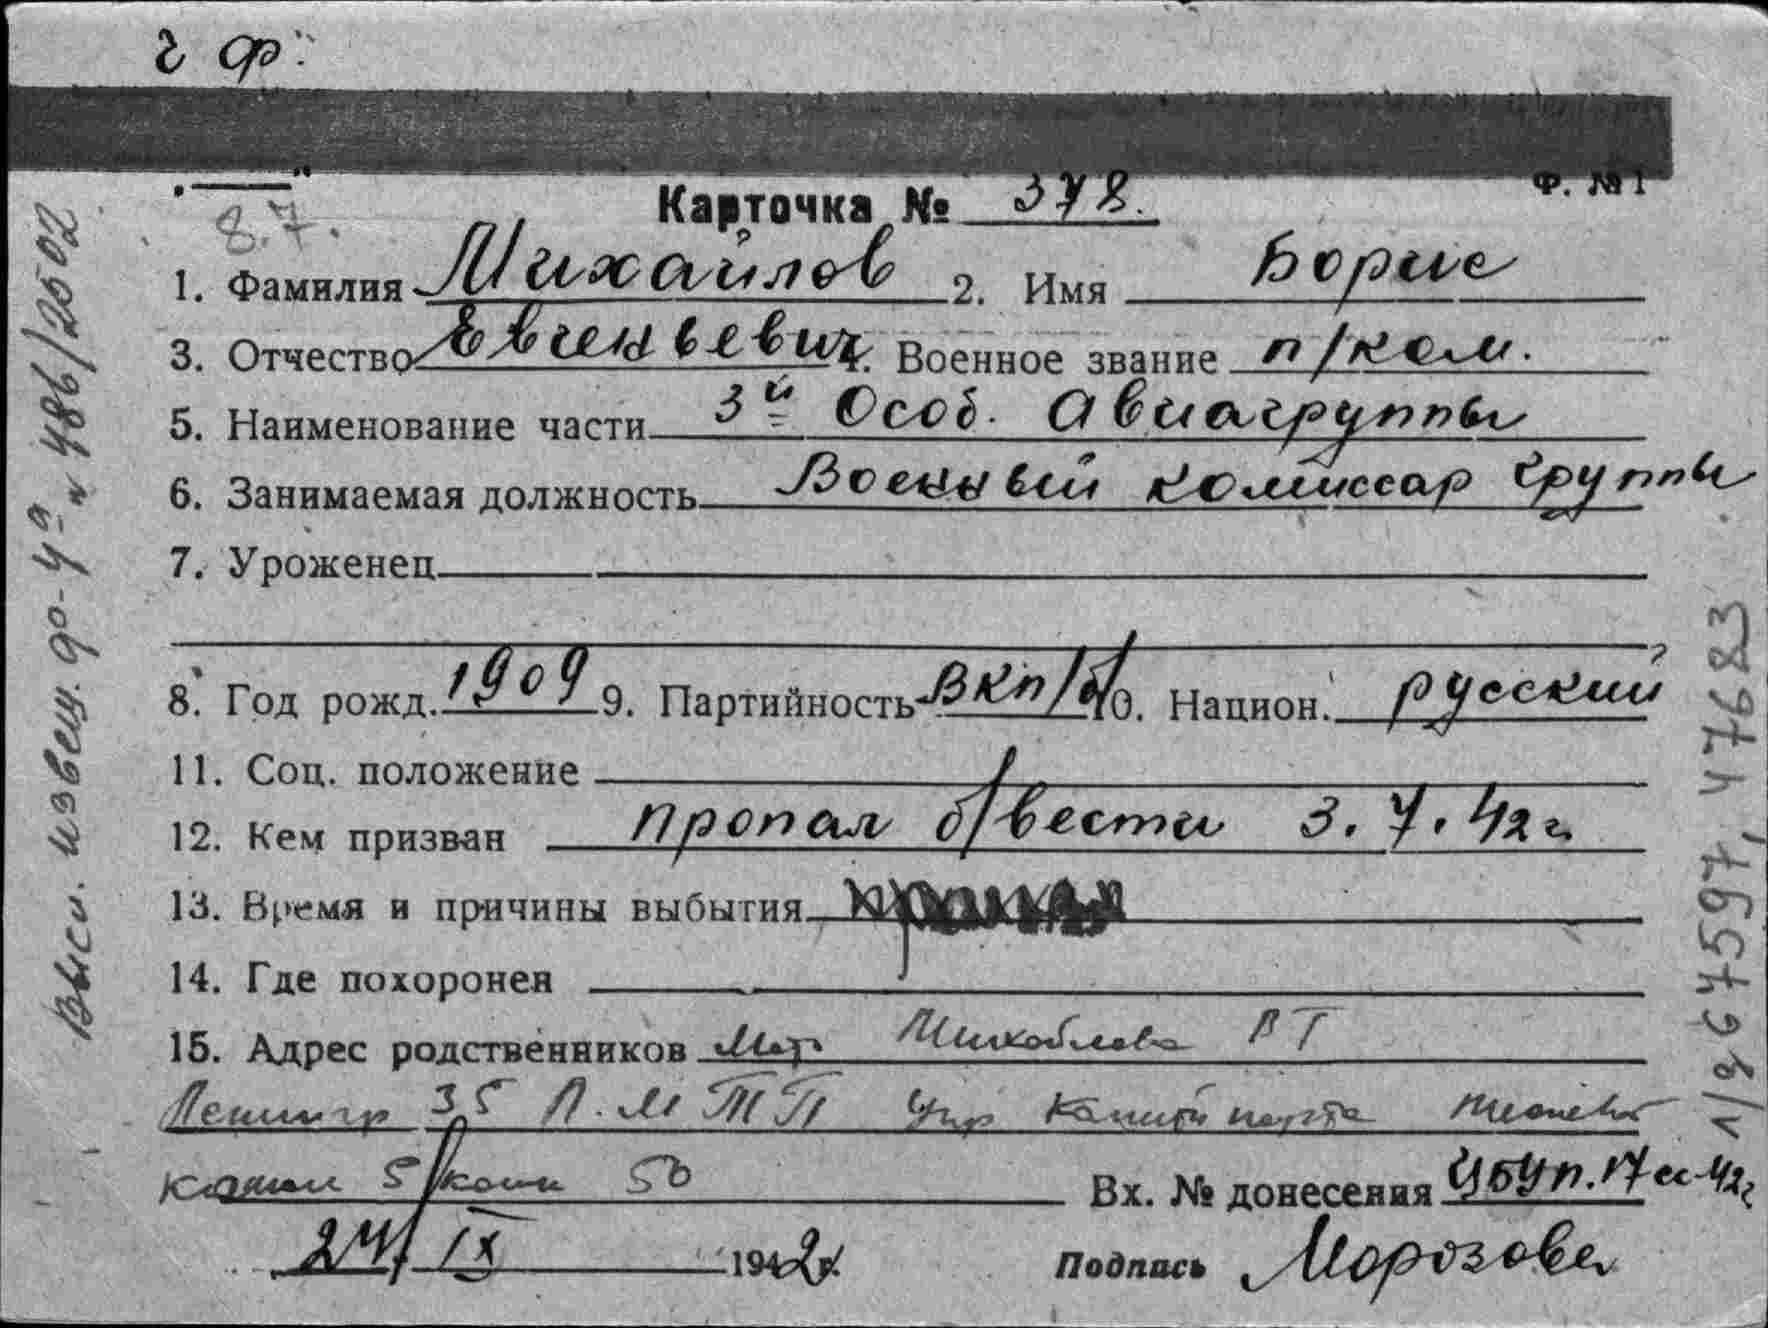 г ф.
Ф. №1
8.7.
Карточка № 378.
1. Фамилия Михайлов 2. Имя Борис
3. Отчество Евгеньевич 4. Военное звание п/ком.
5. Наименование части 3й Особ. Авиагруппы
6. Занимаемая должность Военный комиссар группы
7. Уроженец
8. Год рожд. 1909 9. Партийность ВКП/б/ 10. Национ. русский
11. Соц. положение
12. Кем призван пропал б/вести 3.7.42 г.
13. Время и причины выбытия
14. Где похоронен
15. Адрес родственников Михайлова
35 Л.М.Т.П
5 50
Вх. № донесения 17 сс-42г
24/IX 1942 г.
Подпись Морозова
Высл. извещ. 486/2502
67597, 47683